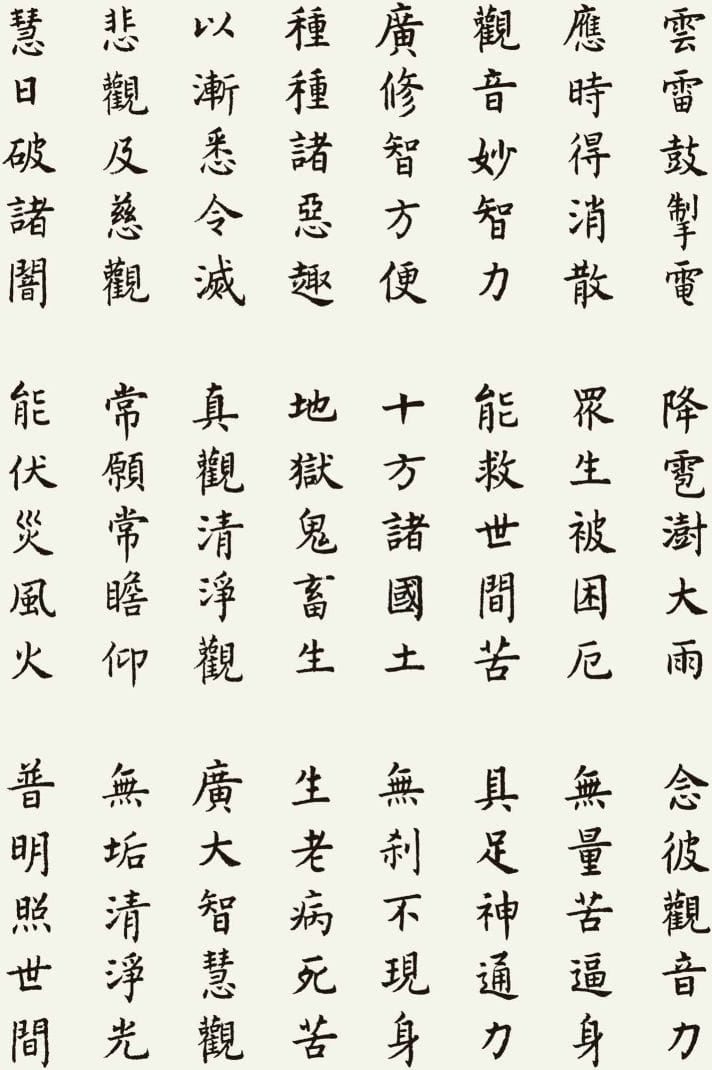 雲雷鼓掣電 降雹澍大雨 念彼觀音力
應時得消散 眾生被困厄 無量苦逼身
觀音妙智力 能救世間苦 具足神通力
廣修智方便 十方諸國土 無剎不現身
種種諸惡趣 地獄鬼畜生 生老病死苦
以漸悉令滅 真觀清淨觀 廣大智慧觀
悲觀及慈觀 常願常瞻仰 無垢清淨光
慧日破諸闇 能伏災風火 普明照世間